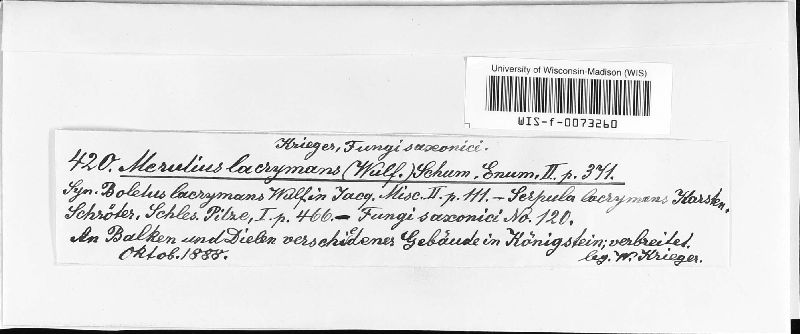 University of Wisconsin-Madison (WIS)
WIS-f-0073260
Krieger, Fungi saxonici.
420. Merulius lacrymans (Wulf.) Schum. Enum. II. p. 371.
Syn. Boletus lacrymans Wulf. in Jacq. Misc. II. p. 111. – Serpula lacrymans Karsten.
Schröter. Schles. Pilze, I. p. 466. – Fungi saxonici No. 120.
An Balken und Dielen verschiedener Gebäude in Königstein; verbreitet.
Oktob. 1888. leg. W. Krieger.